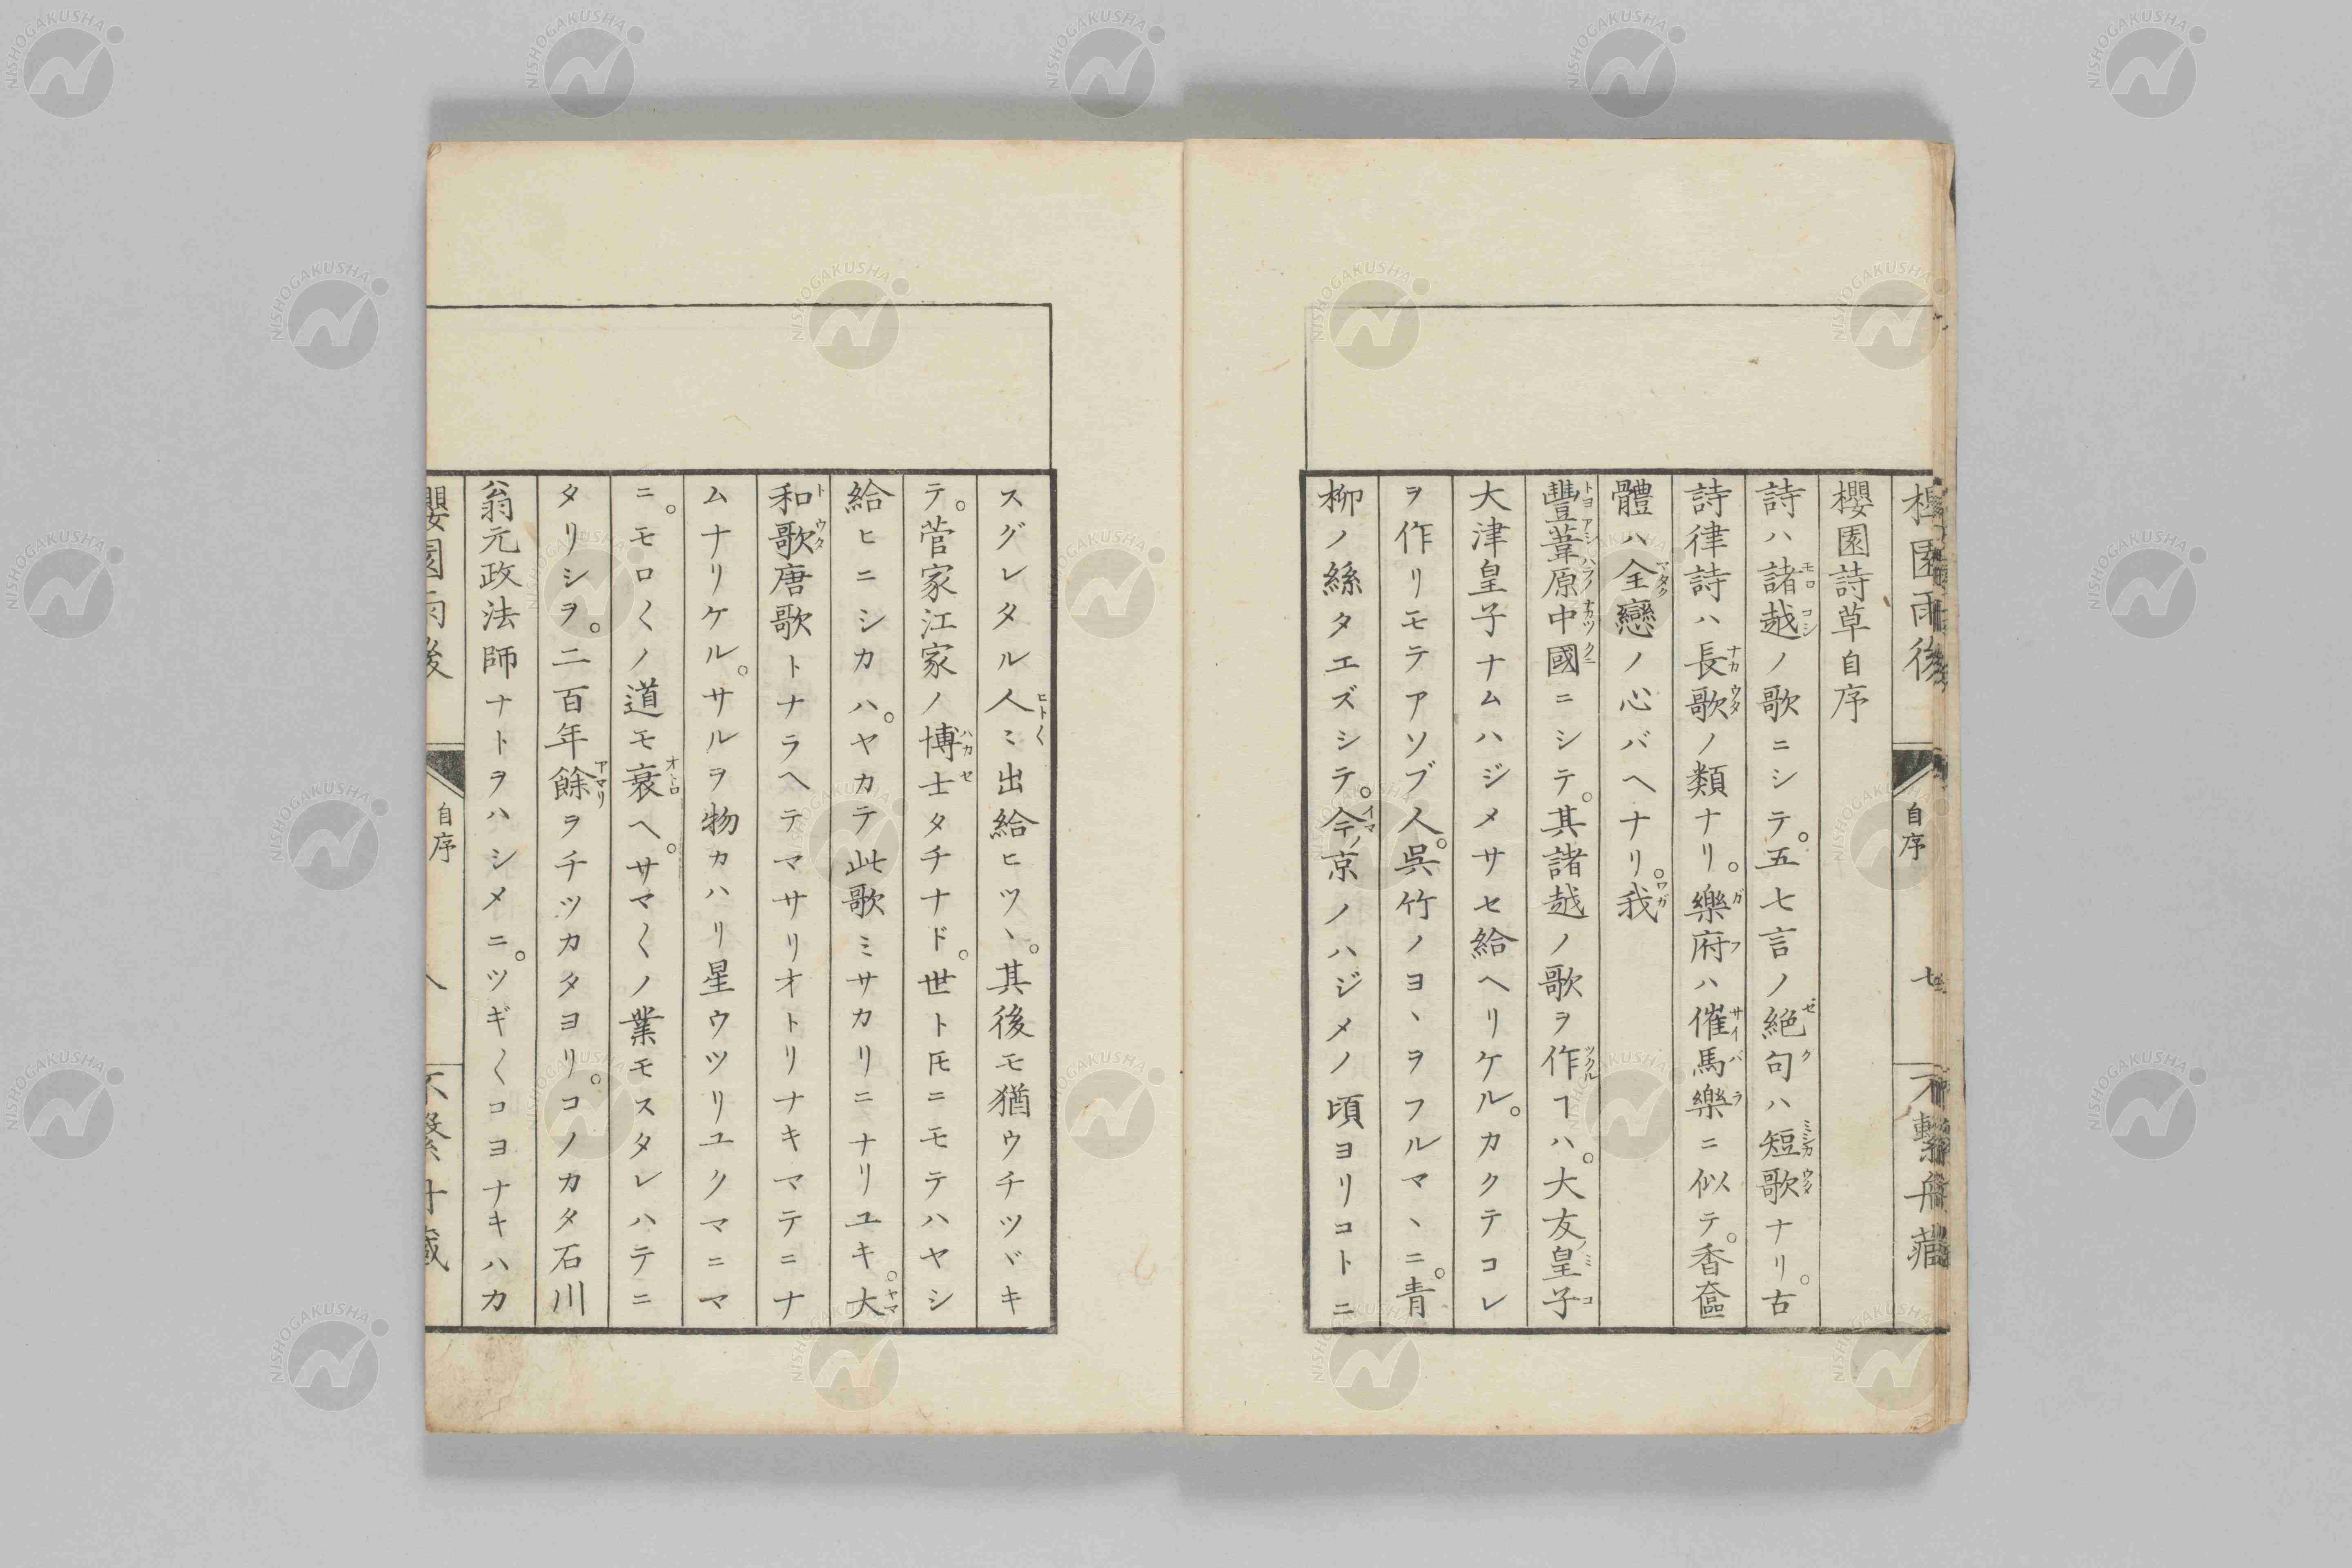 櫻園詩草自序
詩ハ諸越ノ歌ニシテ。五七言ノ絶句ハ短歌ナリ。古
詩律詩ハ長歌ノ類ナリ。樂府ハ催馬樂ニ似テ。香奩
體ハ全戀ノ心バヘナリ。我
豐葦原中國ニシテ。其諸越ノ歌ヲ作ヿハ。大友皇子
大津皇子ナムハジメサセ給ヘリケル。カクテコレ
ヲ作リモテアソブ人。呉竹ノヨヽヲフルマヽニ。青
柳ノ絲タエズシテ。今ノ京ノハジメノ頃ヨリコトニ
自序
七
スグレタル人〻出給ヒツヽ。其後モ猶ウチツヾキ
テ。菅家江家ノ博士タチナド。世ト𪜈ニモテハヤシ
給ヒニシカハ。ヤカテ此歌ミサカリニナリユキ。大
和歌唐歌トナラヘテマサリオトリナキマテニナ
ムナリケル。サルヲ物カハリ星ウツリユクマニマ
ニ。モロ〱ノ道モ衰ヘ。サマ〱ノ業モスタレハテニ
タリシヲ。二百年餘ヲチツカタヨリ。コノカタ石川
翁元政法師ナトヲハシメニ。ツギ〱コヨナキハカ
櫻園雨後
自序
八
不繋舟藏
NISHOGAKUSHA